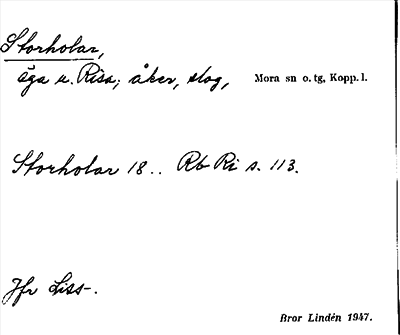 Storholar,
äga u. Risa; åker, slog,
Mora sn o. tg, Kopp. l.
Storholar 18.. Rb Ri s. 113.
Jfr Liss-.
Bror Lindén 1947.